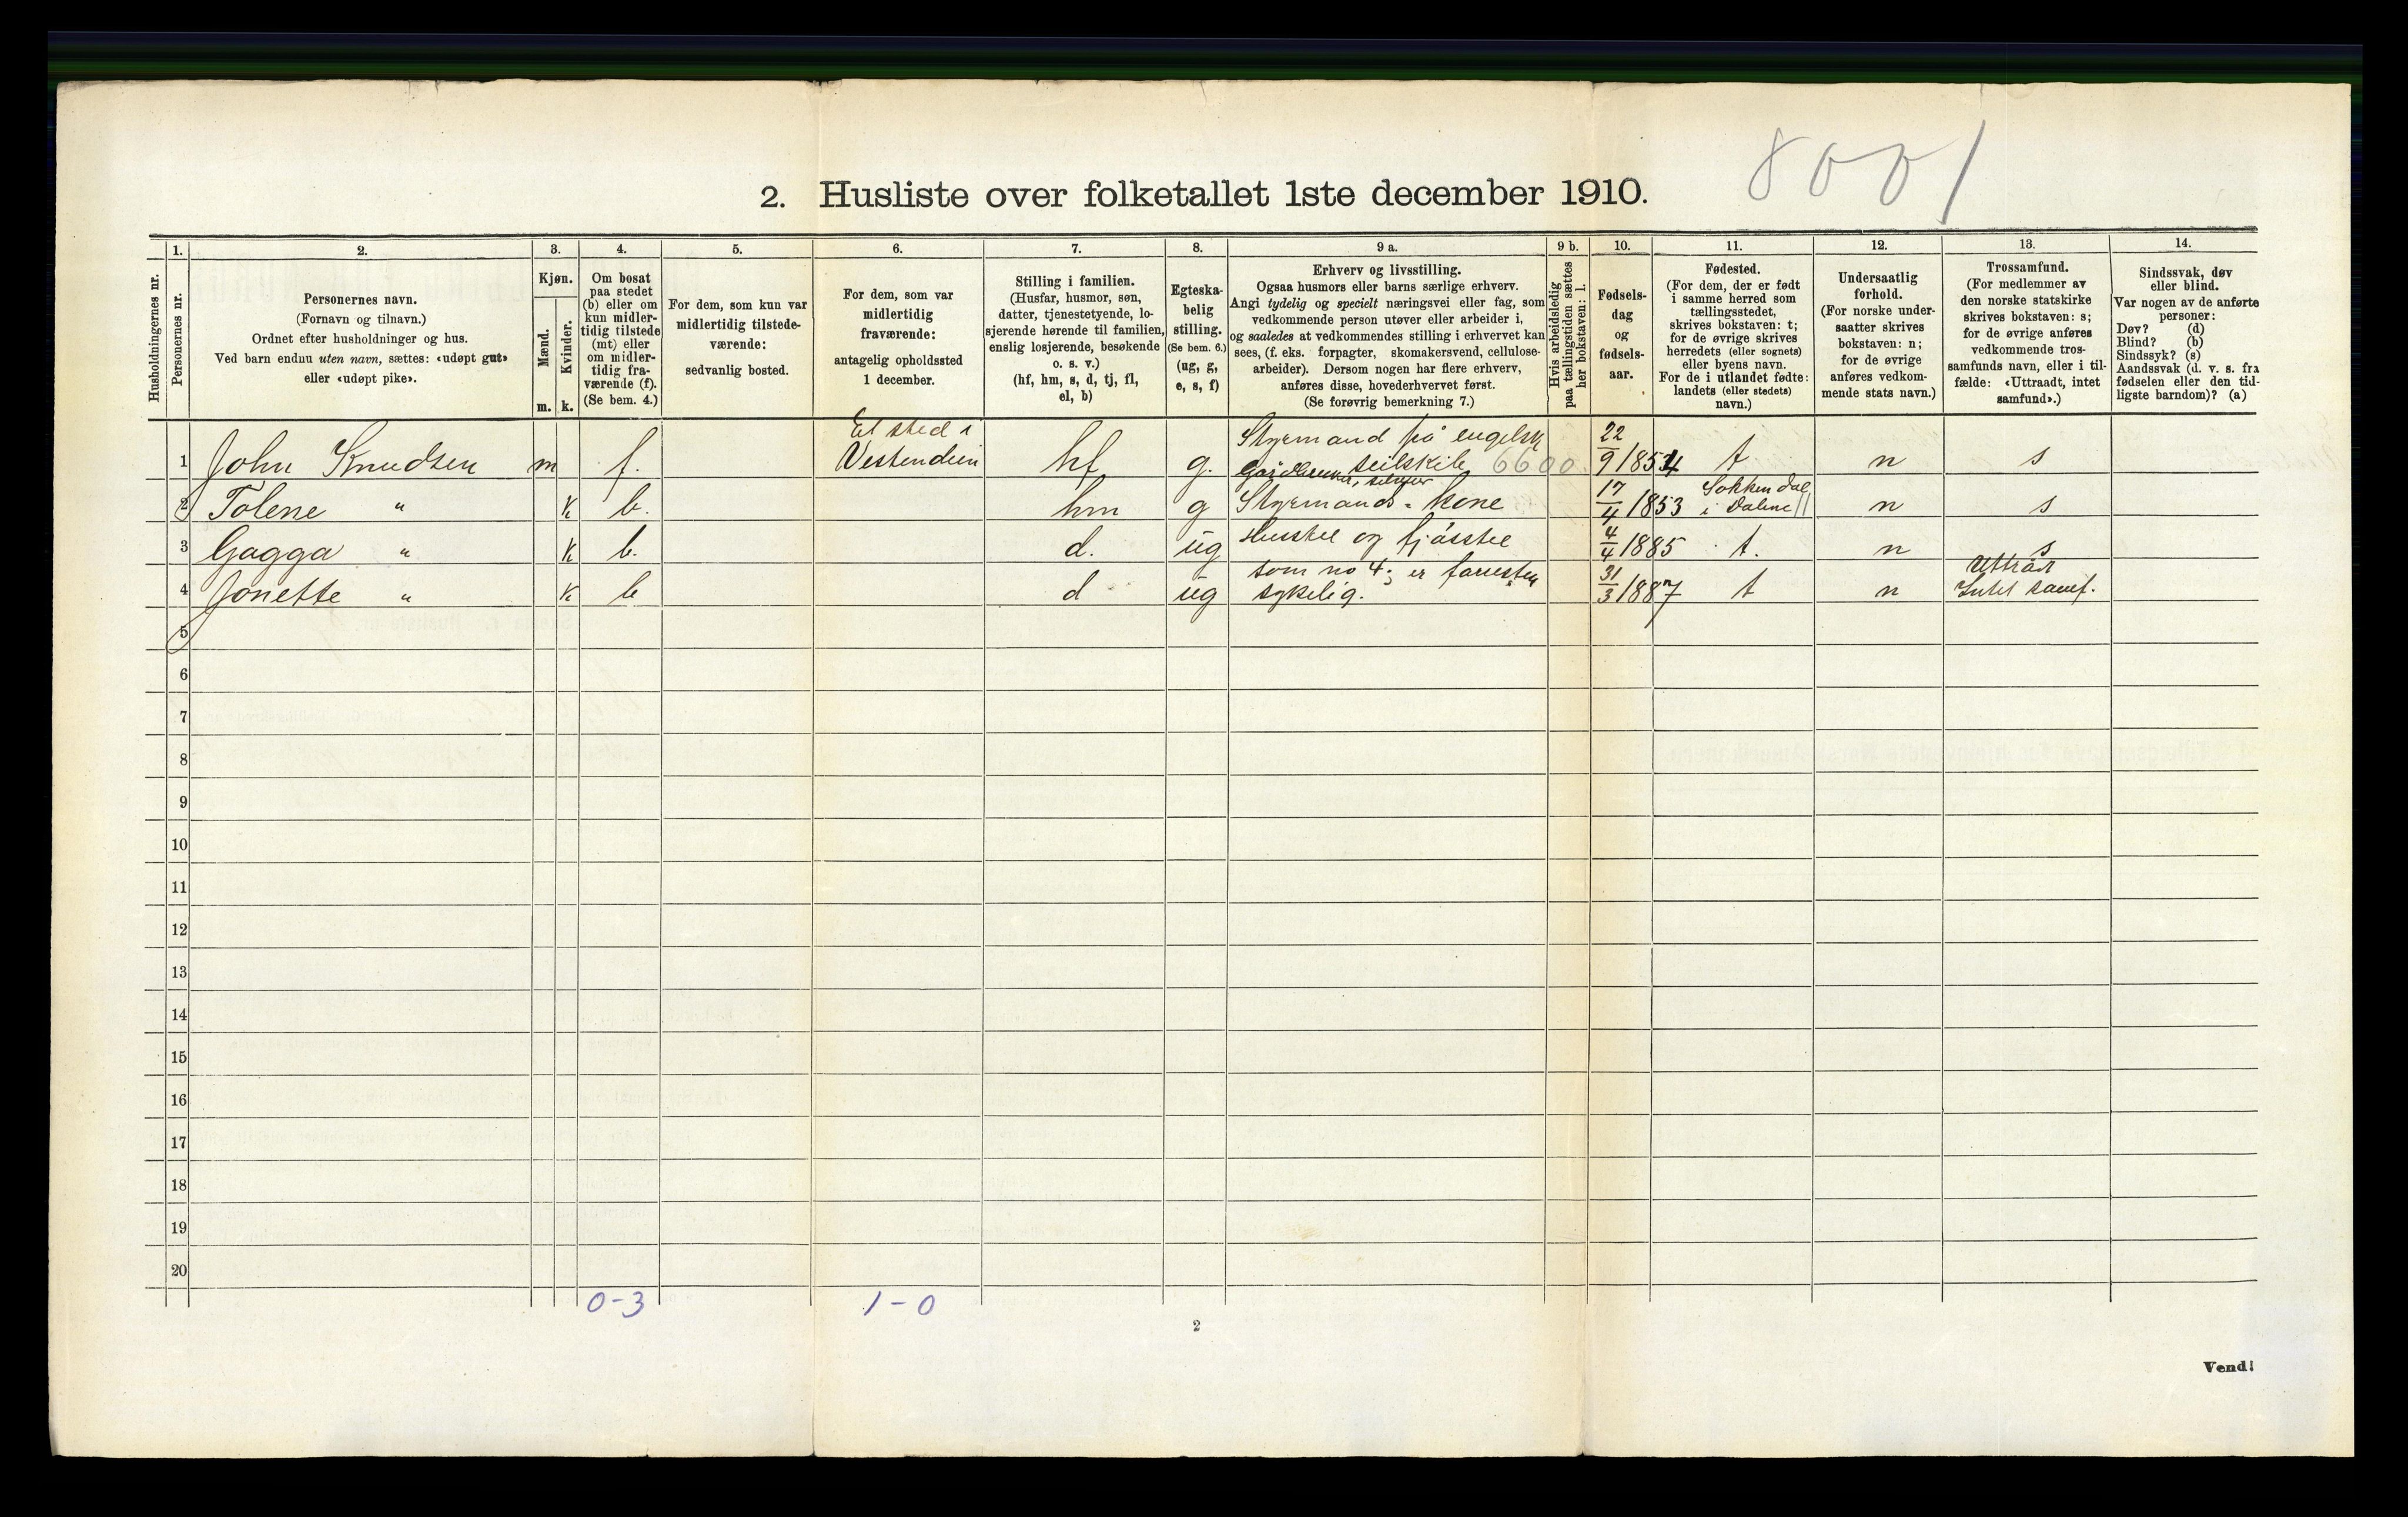 8001
2. Husliste over folketallet 1ste december 1910.
Husholdningernes nr.
1.
Personernes nr.
2.
Personernes navn.
(Fornavn og tilnavn.)
Ordnet efter husholdninger og hus.
Ved barn endnu uten navn, sættes: «udøpt gut»
eller «udøpt pike».
3.
Kjøn.
Mænd.
m.
Kvinder.
k.
4.
Om bosat
paa stedet
(b) eller om
kun midler-
tidig tilstede
(mt) eller
om midler-
tidig fra-
værende (f).
(Se bem. 4.)
5.
For dem, som kun var
midlertidig tilstede-
værende:
sedvanlig bosted.
6.
For dem, som var
midlertidig
fraværende:
antagelig opholdssted
1 december.
7.
Stilling i familien.
(Husfar, husmor, søn,
datter, tjenestetyende, lo-
sjerende hørende til familien,
enslig losjerende, besøkende
o. s. v.)
(hf, hm, s, d, tj, fl,
el, b)
8.
Egteska-
belig
stilling.
(Se bem. 6.)
(ug, g,
e, s, f)
9 a.
Erhverv og livsstilling.
Ogsaa husmors eller barns særlige erhverv.
Angi tydelig og specielt næringsvei eller fag, som
vedkommende person utøver eller arbeider i,
og saaledes at vedkommendes stilling i erhvervet kan
sees, (f. eks. forpagter, skomakersvend, cellulose-
arbeider). Dersom nogen har flere erhverv,
anføres disse, hovederhvervet først.
(Se forøvrig bemerkning 7.)
9 b.
Hvis arbeidsledig
paa tællingstiden sættes
her bokstaven: l.
10.
Fødsels-
dag
og
fødsels-
aar.
11.
Fødested.
(For dem, der er født
i samme herred som
tællingsstedet,
skrives bokstaven: t;
for de øvrige skrives
herredets (eller sognets)
eller byens navn.
For de i utlandet fødte:
landets (eller stedets)
navn.)
12.
Undersaatlig
forhold.
(For norske under-
saatter skrives
bokstaven: n;
for de øvrige
anføres vedkom-
mende stats navn.)
13.
Trossamfund.
(For medlemmer av
den norske statskirke
skrives bokstaven: s;
for de øvrige anføres
vedkommende tros-
samfunds navn, eller i til-
fælde: «Uttraadt, intet
samfund».)
14.
Sindssvak, døv
eller blind.
Var nogen av de anførte
personer:
Døv? (d)
Blind? (b)
Sindssyk? (s)
Aandssvak (d. v. s. fra
fødselen eller den tid-
ligste barndom)? (a)
Et sted i Styrmand på engelsk
1 John Knudsen m f. Vestendien hf g. seilskib 6600 22/9 1854 t n s
2 Tolene " k b. hm g Styrmands-kone 17/4 1853 Sokkendal i Dalene n s
3 Gagga " k b. d. ug Husstel og fjösstel 4/4 1885 t. n s
4 Jonette " k b d ug som no 4; er foruten sykelig. 31/3 1887 t n Uttråt Intet samf.
5
6
7
8
9
10
11
12
13
14
15
16
17
18
19
20
0-3 1-0
2
Vend!